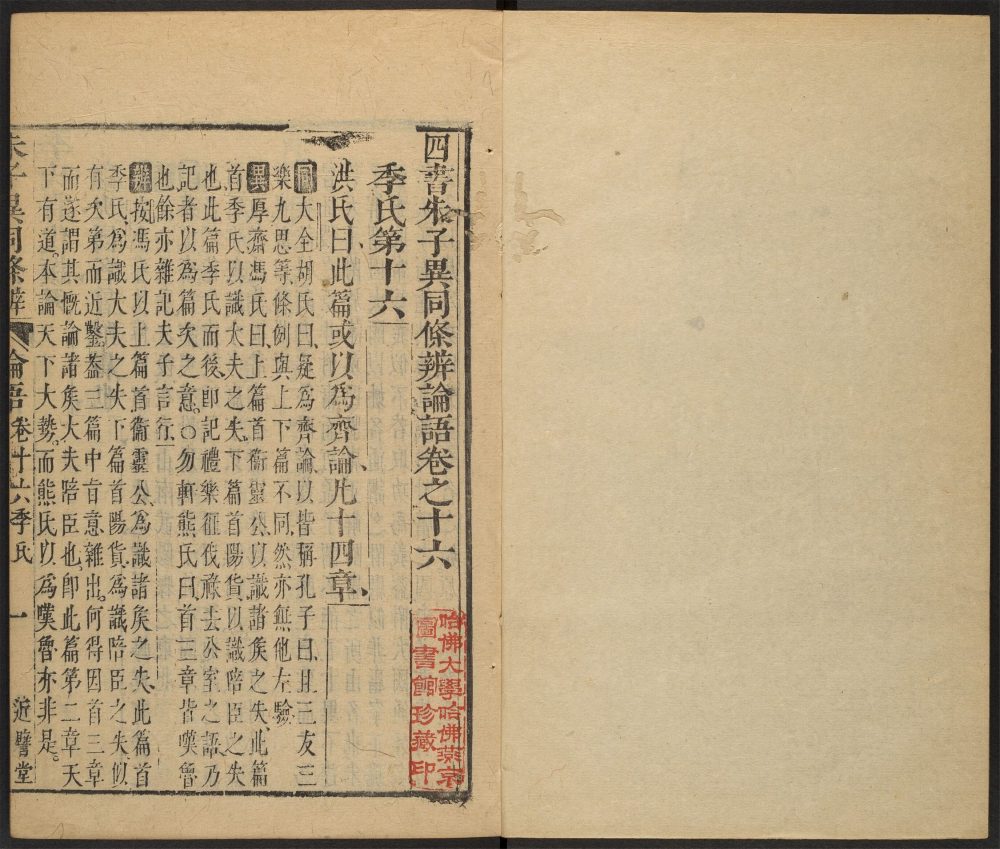 四書朱子異同條辨論語卷之十六
季氏第十六
洪氏曰此篇或以爲齊論凡十四章
同大全胡氏曰疑爲齊論以皆稱孔子曰且三友三
樂九思等條例與上下篇不同然亦無他左驗
異厚齋馮氏曰上篇首衞靈公以識諸矦之失此篇
首季氏以識大夫之失下篇首陽貨以識陪臣之失
也此篇季氏而後即記禮樂征伐祿去公室之語乃
記者以爲篇次之意○勿軒熊氏曰首三章皆嘆魯
也餘亦雜記夫子言行
辨按馮氏以上篇首衞靈公爲識諸矦之失此篇首
季氏爲識大夫之失下篇首陽貨爲識陪臣之失似
有次第而近鑿葢三篇中旨意雜出何得因首三章
而遂謂其慨論諸矦大夫陪臣也即此篇第二章天
下有道本論天下大勢而熊氏以爲嘆魯亦非是
朱子異同條辨 論語卷十六季氏 一 近譬堂
哈佛大學哈佛燕京
圖書館珍藏印